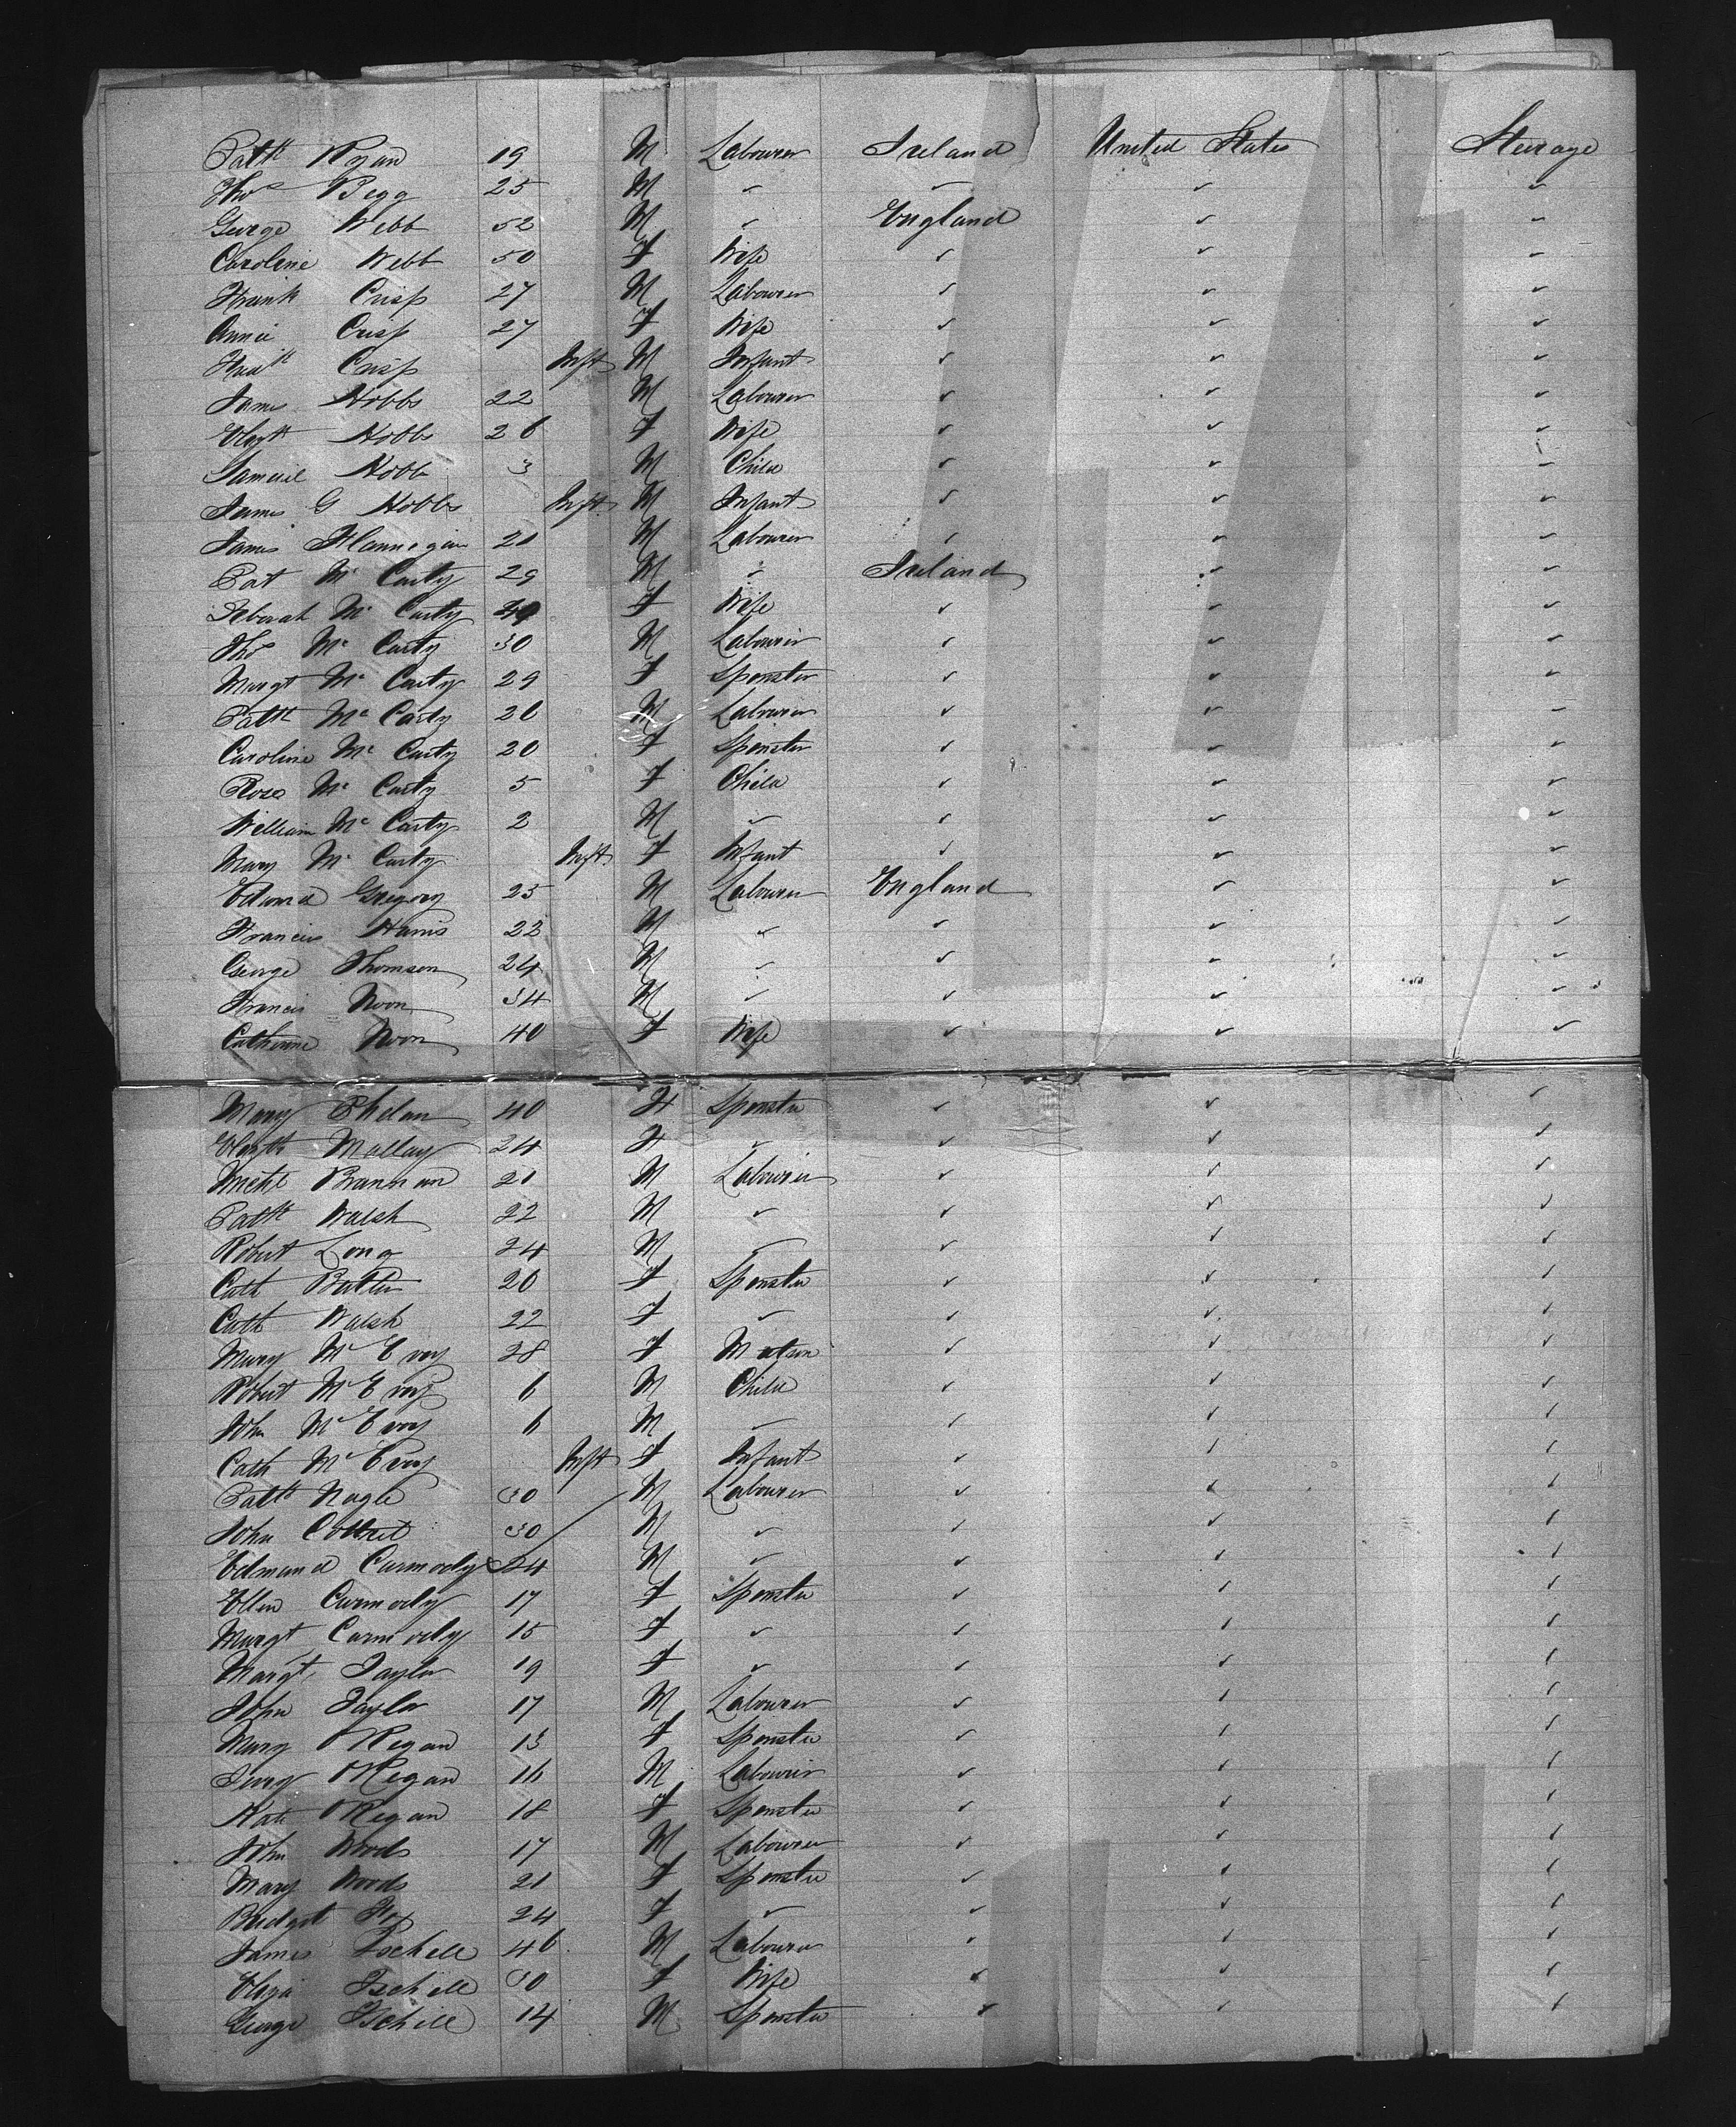 Patk Ryan 19 M Labourer Ireland United States Steerage
Thos Begg 25 M " " " "
George Webb 52 M " England " "
Caroline Webb 50 F Wife " " "
Frank Crisp 27 M Labourer " " "
Annie Crisp 27 F Wife " " "
Fredk Crisp Inft M Infant " " "
James Hobbs 22 M Labourer " " "
Elizth Hobbs 26 F Wife " " "
Samuel Hobbs 3 M Child " " "
James G Hobbs Inft M Infant " " "
James Flannegan 21 M Labourer " " "
Pat Mc Carty 29 M " Ireland " "
Deborah Mc Carty F Wife " " "
Thos Mc Carty 30 M Labourer " " "
Margt Mc Carty 29 F Spinster " " "
Patk Mc Carty 26 M Labourer " " "
Caroline Mc Carty 20 F Spinster " " "
Rose Mc Carty 5 F Child " " "
William Mc Carty 2 M " " " "
Mary Mc Carty Inft F Infant " " "
Edward Gregory 25 M Labourer England " "
Francis Harris 22 M " " " "
George Thomson 24 M " " " "
Francis Noon 34 M " " " "
Catherine Noon 40 F Wife " " "
Mary Phelan 40 F Spinster " " "
Elizth Mallay 24 F " " " "
Michl Brannan 21 M Labourer " " "
Patk Walsh 22 M " " " "
Robert Long 24 M " " " "
Cath Butler 20 F Spinster " " "
Cath Walsh 22 F " " " "
Mary McEvoy 28 F Matron " " "
Robert McEvoy 6 M Child " " "
John McEvoy 6 M " " " "
Cath McEvoy Inft F Infant " " "
Patk Nagle 30 M Labourer " " "
John 30 M " " " "
Edmund Carmody 24 M " " " "
Ellen Carmody 17 F Spinster " " "
Margt Carmody 15 F " " " "
Margt Taylor 19 F " " " "
John Taylor 17 M Labourer " " "
Mary O'Regan 13 F Spinster " " "
Jerry O'Regan 16 M Labourer " " "
Kate O'Regan 18 F Spinster " " "
John Woods 17 M Labourer " " "
Mary Woods 21 F Spinster " " "
Bridget Fox 24 F " " " "
James 46 M Labourer " " "
Eliza 30 F Wife " " "
George 14 M Spinster " " "